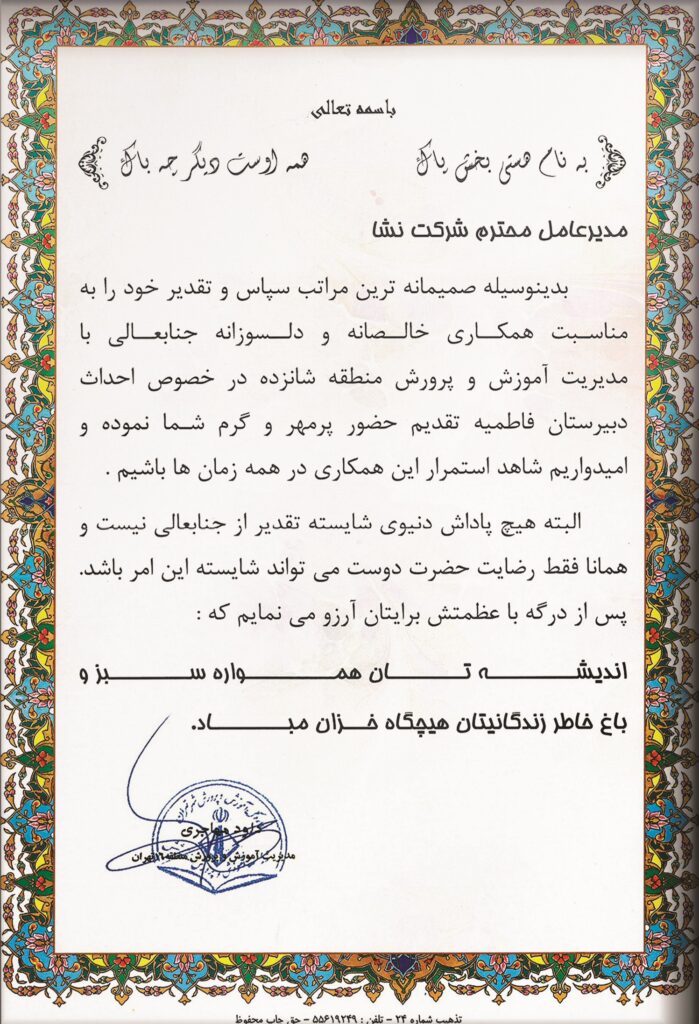 باسمه تعالی
به نام هستی بخش پاک همه اوست دیگر چه باک
مدیرعامل محترم شرکت نشا
بدینوسیله صمیمانه ترین مراتب سپاس و تقدیر خود را به
مناسبت همکاری خالصانه و دلسوزانه جنابعالی با
مدیریت آموزش و پرورش منطقه شانزده در خصوص احداث
دبیرستان فاطمیه تقدیم حضور پرمهر و گرم شما نموده و
امیدواریم شاهد استمرار این همکاری در همه زمان ها باشیم .
البته هیچ پاداش دنیوی شایسته تقدیر از جنابعالی نیست و
همانا فقط رضایت حضرت دوست می تواند شایسته این امر باشد.
پس از درگه با عظمتش برایتان آرزو می نمایم که :
اندیشه تان همواره سبز و
باغ خاطر زندگانیتان هیچگاه خزان مباد.
داود مهاجری
مدیریت آموزش و پرورش منطقه ۱۶ تهران
تذهیب شماره ۲۴ - تلفن : ۵۵۶۱۹۲۴۹ - حق چاپ محفوظ